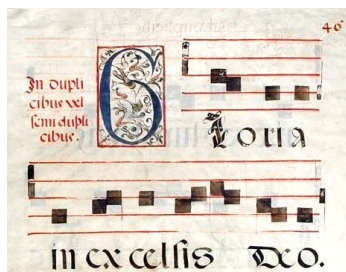 46
In dupli
cibus vel
semi dupli
cibus.
Gloria
in excelsis Deo.